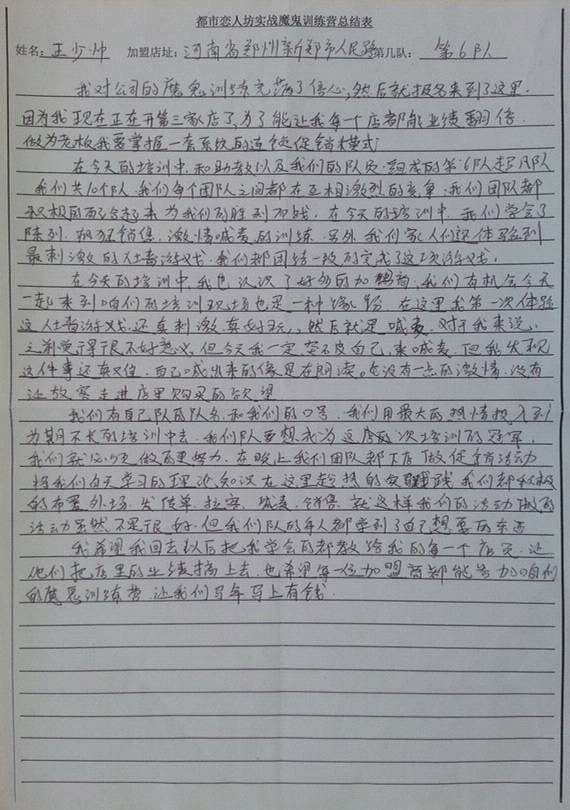 都市恋人坊实战魔鬼训练营总结表
姓名：王少帅 加盟店址：河南省郑州新郑市人民路 第几队：第6队
我对公司的魔鬼训练充满了信心，然后就报名来到了这里.
因为我现在正在开第三家店了，为了能让我每一个店都能业绩翻倍.
做为老板我要掌握一套系统的连锁促销模式
在今天的培训中.和助教以及我们的队员.组成的第6队超凡队
我们共10个队.我们每个团队之间都在互相激烈的竞争.我们团队都
积极的配合起来为我们的胜利加战.在今天的培训中.我们学会了
陈列.疯狂销售.激情喊麦的训练.另外我们家人们还体验到
最刺激的人椅游戏.我们都团结一致的完成了这次游戏.
在今天的培训中.我也认识了好多的加盟商.我们有机会今天
一起来到咱们的培训现场也是一种缘分.在这里我第一次体验
这人椅游戏.还真刺激真好玩，然后就是喊麦.对于我来说.
之前觉得很不好意义.但今天我一定 不 自己.来喊麦.但我发现
这件事还真又住.自己喊出来的像是在朗读.也没有一点的激情.没有
让顾客走进店里购买的欲望
我们有自己队的队名.和我们的口号.我们用最大的热情投入到
为期不长的培训中去.我们队要想成为这 的次培训的冠军.
我们就必须做的更努力.在晚上我们团队都下店做促销活动
把我们白天学习的理论知识在这里 的实践 我们都积极
的布置外场.发传单.拉客.喊麦.销售.就这样我们的活动 的
活动虽然不是很好.但我们队的每人都学到了自己想要的东西
我希望我回去以后把我学会的都教给我的每一个店员.让
他们把店里的业绩搞上去.也希望每一位加盟商都能参加咱们
的魔鬼训练营.让我们马年马上有钱.